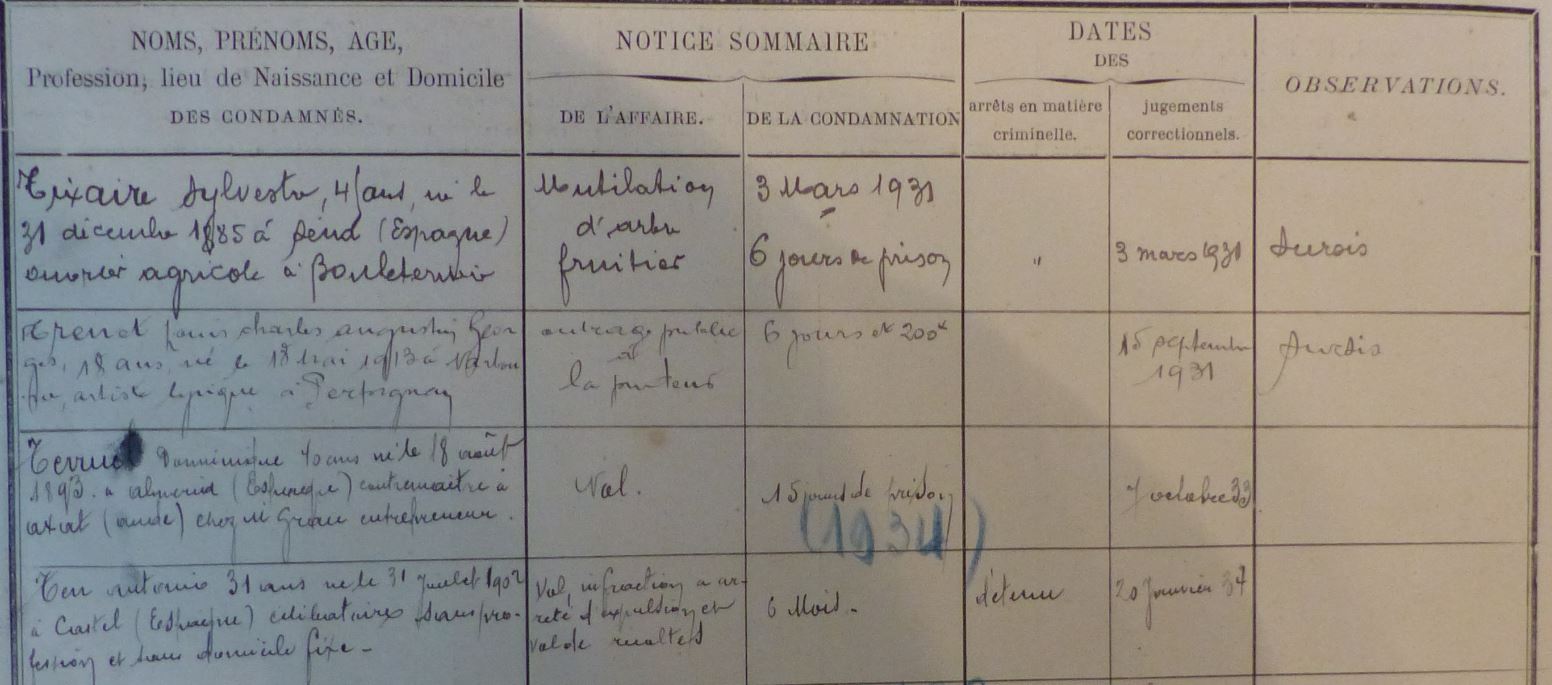 NOMS, PRÉNOMS, AGE,
Profession, lieu de Naissance et Domicile
DES CONDAMNÉS.
NOTICE SOMMAIRE
DE L'AFFAIRE.
DE LA CONDAMNATION
DATES
DES
arrêts en matière
criminelle.
jugements
correctionnels.
OBSERVATIONS.
Tixaire Sylvestre, 45 ans, né le
31 décembre 1885 à (Espagne)
ouvrier agricole à Bouleternère
Mutilation
d'arbre
fruitier
3 Mars 1931
6 jours de prison
"
3 mars 1931
Sursis
Trenet Louis Charles augustin Geor
ges, 18 ans, né le 18 Mai 1913 à Narbon
ne, artiste à Perpignan
outrage public
à
la pudeur
6 jours et 200f
15 septembre
1931
Sursis
Dominique 40 ans né le 18 août
1893. a (Espagne) contremaitre à
axat (aude) chez M Grau entrepreneur.
Vol.
15 jours de prison
(1934)
7 octobre 33
Antonio 31 ans né le 31 Juillet 1902
à Castel (Espagne) célibataire sans pro-
fession et sans domicile fixe -
Vol, infraction a ar-
reté d'expulsion et
vol de récoltes
6 Mois -
détenu
20 Janvier 34